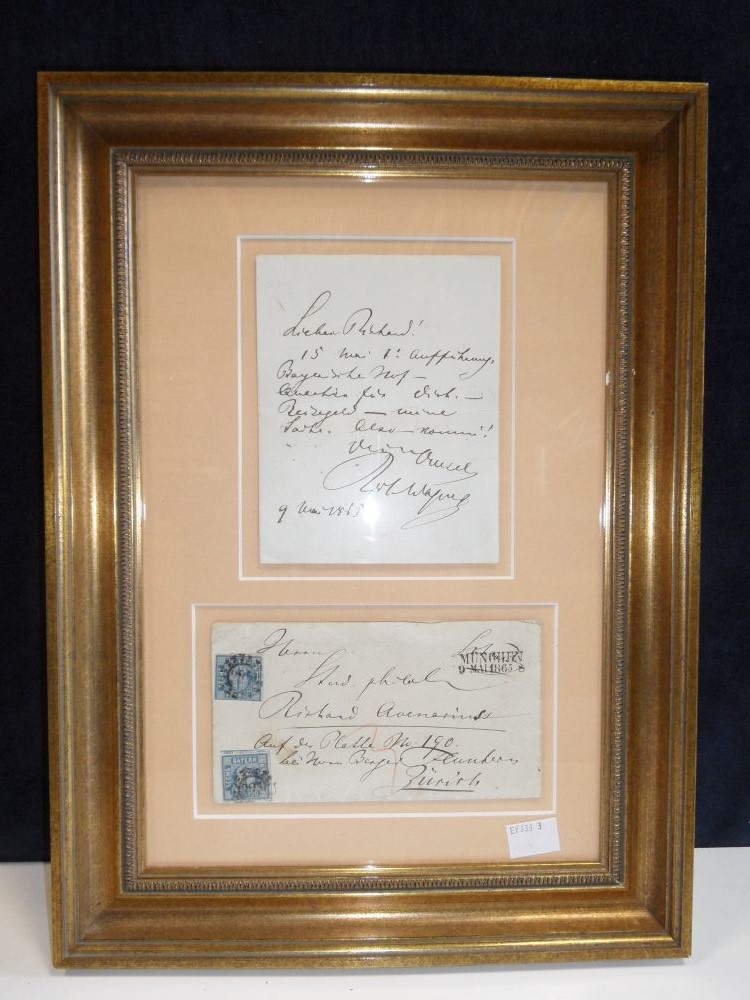 Lieber Richard!
15 Mai 1. Aufführung,
Bayerische Hof –
Quartier für Dich. –
Reisegeld – meine
Sache. Also – komm!
Dein Onkel
Rich Wagner
9 Mai 1865
Herrn
MÜNCHEN
9 MAI 1865
Stud. philol.
Richard Avenarius
Auf der Platte No. 190.
bei Herrn Berger Fluntern
Zürich
BAYERN
SECHS
EX333 3